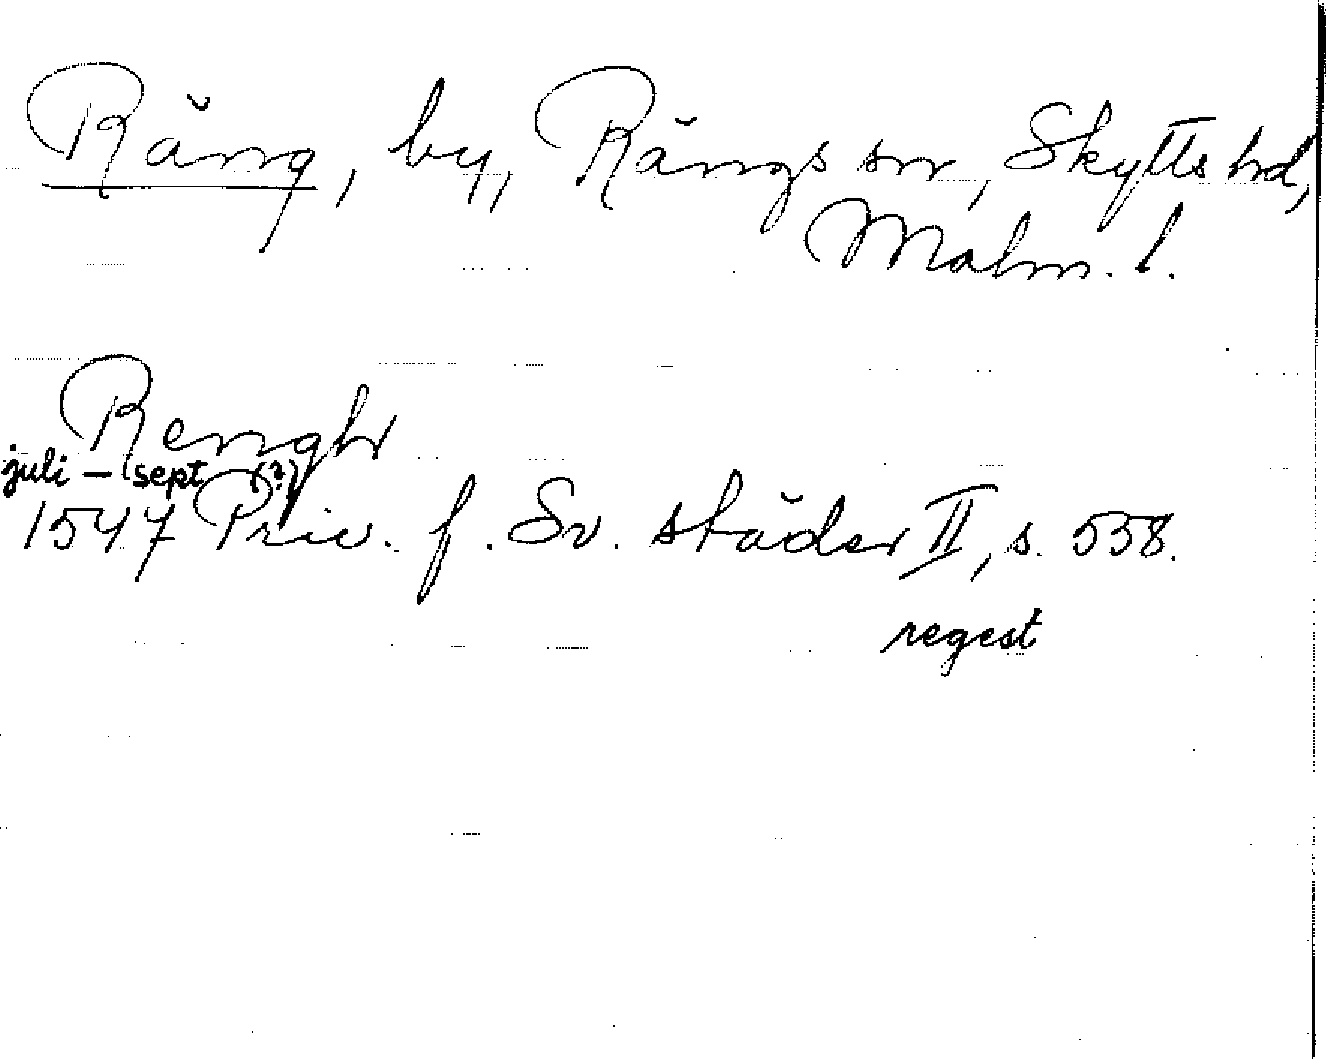 Räng, by, Rängs sn, Skytts hd,
Malm. l.
Rengh
juli – sept (?)
1547 Priv. f. Sv. städer II, s. 538.
regest